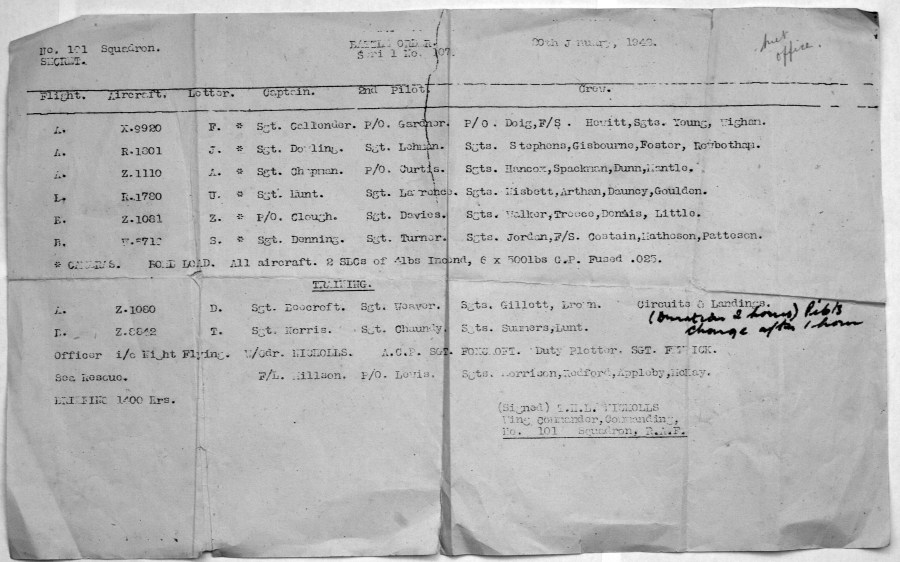 No. 101 Squadron. BATTLE ORDER. 30th January, 1942. hut
SECRET. Serial No. 107. office.
Flight. Aircraft. Letter. Captain. 2nd Pilot. Crew.
A. X.9920 F. * Sgt. Callender. P/O. Gardner. P/O. Doig,F/S. Howitt,Sgts. Young, Highan.
A. R.1801 J. * Sgt. Dowling. Sgt. Lehman. Sgts. Stephens,Gisbourne,Foster, Rowbotham.
A. Z.1110 A. * Sgt. Chapman. P/O. Curtis. Sgts. Hancox,Spackman,Dunn,Mantle.
B. R.1780 U. * Sgt. Hunt. Sgt. Lawrence. Sgts. Nisbett,Arthan,Dauncy,Goulden.
B. Z.1081 Z. * P/O. Clough. Sgt. Davies. Sgts. Walker,Treece,Dennis, Little.
B. S. * Sgt. Denning. Sgt. Turner. Sgts. Jordan,F/S. Costain,Matheson,Patteson.
* CAMERAS. BOMB LOAD. All aircraft. 2 SBCs of 4lbs Incend, 6 x 500lbs G.P. Fused .025.
TRAINING.
A. Z.1080 D. Sgt. Beecroft. Sgt. Weaver. Sgts. Gillott, Brown. Circuits & Landings.
(Duration 2 hours) Pilots
B. Z.8842 T. Sgt. Morris. Sgt. Chaundy. Sgts. Sumners,Lunt. change after 1 hour
Officer i/c Night Flying. W/Cdr. NICHOLLS. A.C.P. SGT. FOXCROFT. Duty Plotter. SGT. FENWICK.
Sea Rescue. F/L. Millson. P/O. Lewis. Sgts. Morrison,Redford,Appleby,McKay.
BRIEFING 1400 Hrs.
(Signed) T.H.L. NICHOLLS
Wing Commander, Commanding,
No. 101 Squadron, R.A.F.